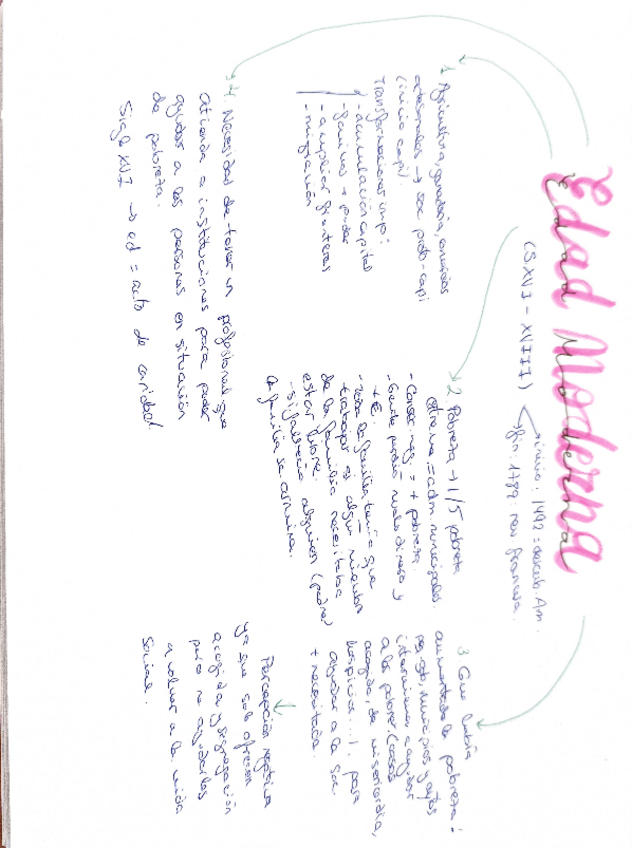 Edad Moderna
(S.XVI - XVIII)
inicio: 1492 = descub. Am.
fin: 1789: rev francesa.
1 Agricultura, ganadería,
artesanales → soc proto-capi
(inicio capi).
Transformaciones imp:
- acumulación capital
- familias + poder
- ampliar fronteras
- migración
2 Pobreza → 1/5 pobreza
extrema = adm. municipales.
- Consec. neg: = + pobreza.
- Gente pedía = malo dinero y
+ €.
- Toda la familia tenía que
trabajar si algún miembro
de la familia necesitaba
estar libre.
- si fallecía alguien (padre)
la familia se arruina.
3 Como había
aumentado la pobreza:
municipios y aytos
intervinieron a ayudar
a los pobres. (casas
acogida, de misericordia,
hospicios...), para
ayudar a la soc.
+ necesitada.
Percepción negativa
ya que solo ofrecen
acogida y segregación
pero no ayudarles
a volver a la vida
social.
4. Necesidad de tener un profesional que
atienda a instituciones para poder
ayudar a las personas en situación
de pobreza.
Siglo XVI → ed = acto de caridad